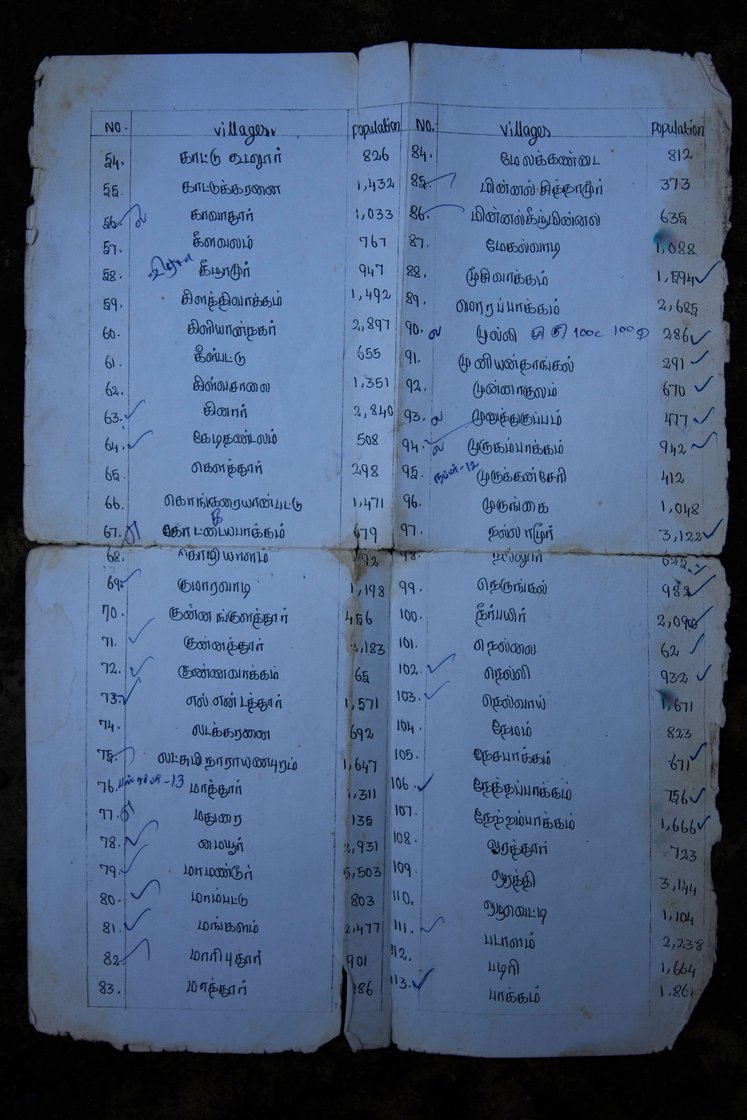 NO. Villages Population
54. காட்டு கூடலூர் 826
55. காட்டுக்கரனை 1,432
56. காவாதூர் 1,033
57. கீளவலம் 767
58. கீழாமூர் 947
59. கிளத்திவாக்கம் 1,492
60. கிளியாநகர் 2,897
61. கீல்பட்டு 655
62. கிள்வசாலை 1,351
63. கினார் 2,840
64. கேடிதண்டலம் 508
65. கொளத்தூர் 298
66. கொங்கரையான்பட்டு 1,471
67. கோட்டையபாக்கம் 679
68.
69. குமாரவாடி 1,198
70. குன்னங்குளத்தூர் 456
71. குன்னத்தூர் 2,183
72. குண்ணவாக்கம் 65
73. எல் என்டத்தூர் 1,571
74. லடக்கரனை 692
75. லட்சுமி நாராயணபுரம் 1,647
76. மாத்தூர் 1,311
77. மதுரை 135
78. மையூர் 2,931
79. மாமண்டூர் 5,503
80. மாம்பட்டு 803
81. மங்களம் 2,477
82. மாரிபுதூர் 901
83. மாத்தூர் 186
NO. Villages Population
84. மேலக்கண்டை 812
85. மின்னல் சித்தாமூர் 373
86. மின்னல்கீழ்மின்னல் 635
87. மேகல்வாடி 1,088
88. முசிவாக்கம் 1,594
89. மொரப்பாக்கம் 2,685
90. முல்லி 286
91. முனியன்தாங்கல் 291
92. முன்னாகுலம் 670
93. முனுத்துகுப்பம் 477
94. முருகம்பாக்கம் 942
95. முருக்கன்சேரி 412
96. முருங்கை 1,048
97. நல்லாமூர் 3,122
98. நல்லூர்
99. நெருங்கல் 982
100. நீர்பயிர்
101. நெல்லை 62
102. நெல்லி 932
103. நெல்வாய் 1,671
104. நேமம் 823
105. நேசபாக்கம் 671
106. நேத்தப்பாக்கம் 756
107. நேற்றம்பாக்கம் 1,666
108. ஒரத்தூர் 723
109. ஒரத்தி 3,144
110. ஒழாவெட்டி 1,104
111. படாளம் 2,238
112. படிரி 1,664
113. பாக்கம் 1,861